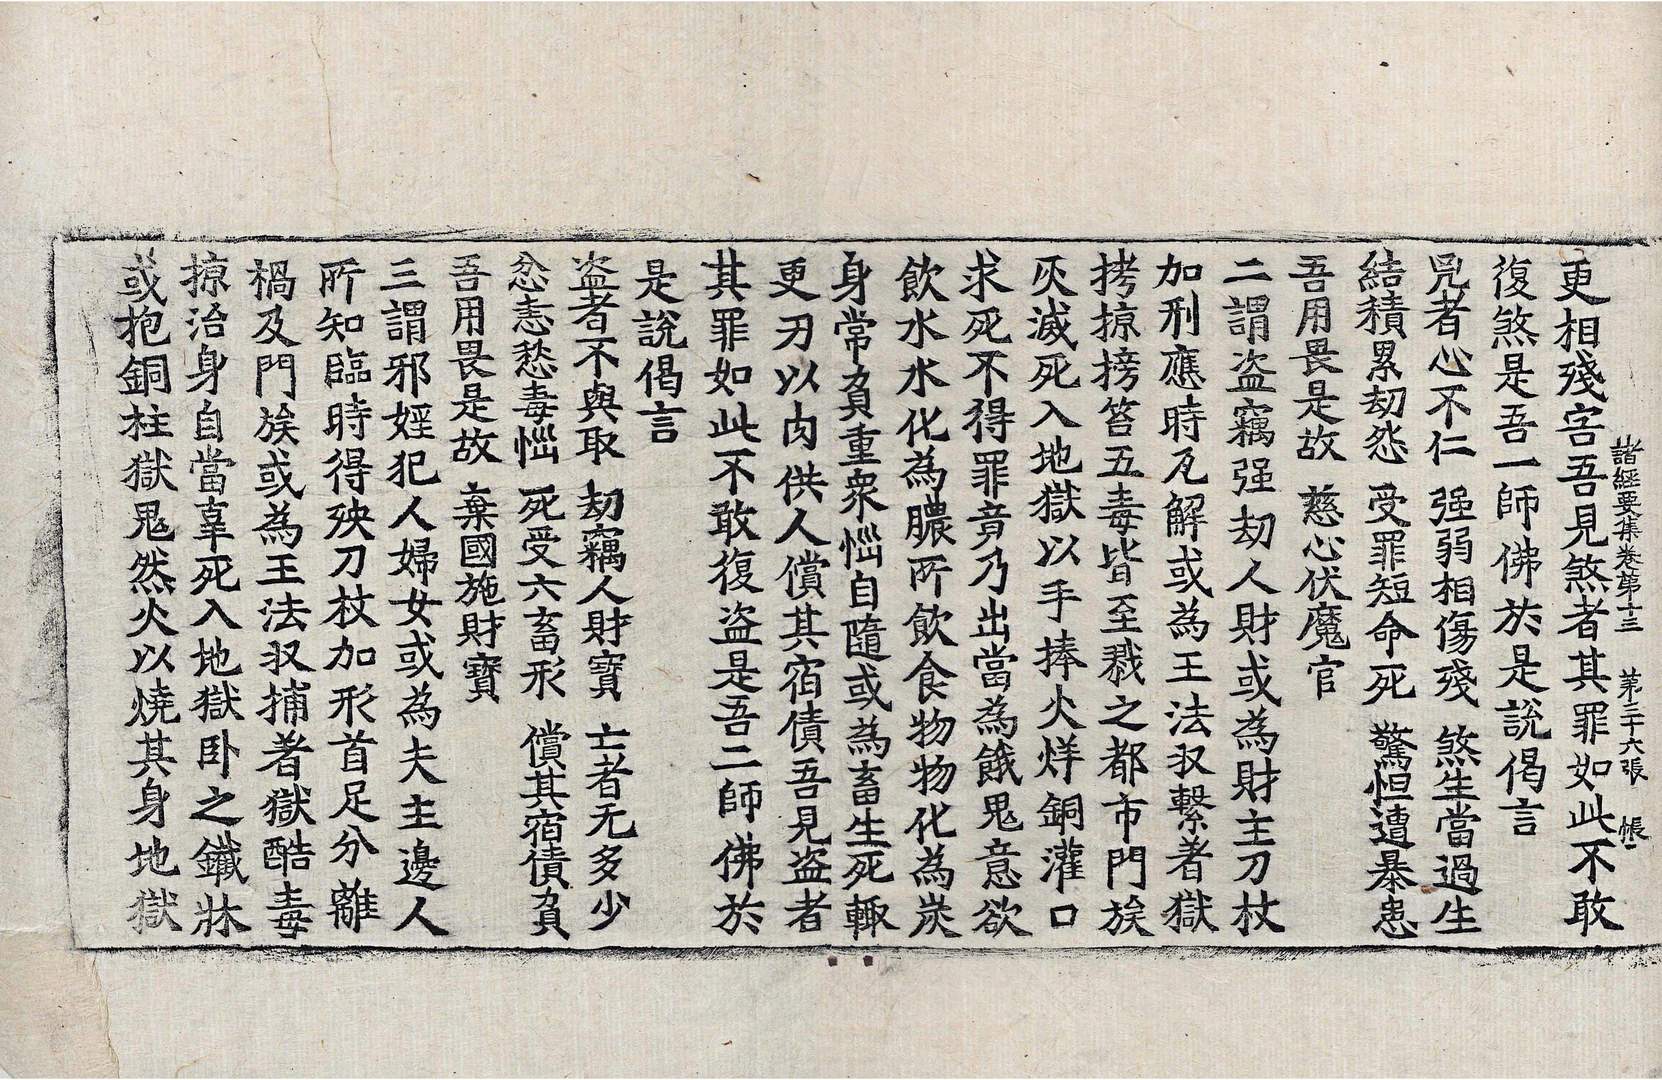 諸經要集卷第十三　第三十六張　帳
更相殘害吾見煞者其罪如此不敢
復煞是吾一師佛於是說偈言
兇者心不仁　强弱相傷殘　煞生當過生
結積累劫怨　受罪短命死　驚怛遭暴患
吾用畏是故　慈心伏魔官
二謂盗竊强劫人財或為財主刀杖
加刑應時瓦解或為王法収繫著獄
拷掠搒笞五毒皆至戮之都市門族
灰滅死入地獄以手捧火烊銅灌口
求死不得罪竟乃出當為餓鬼意欲
飲水水化為膿所飲食物物化為炭
身常負重衆惱自隨或為畜生死輙
更刃以肉供人償其宿債吾見盗者
其罪如此不敢復盗是吾二師佛於
是說偈言
盗者不與取　劫竊人財寶　亡者无多少
忿恚愁毒惱　死受六畜形　償其宿債負
吾用畏是故　棄國施財寶
三謂邪婬犯人婦女或為夫主邊人
所知臨時得殃刀杖加形首足分離
禍及門族或為王法収捕著獄酷毒
掠治身自當辜死入地獄卧之鐵牀
或抱銅柱獄鬼然火以燒其身地獄